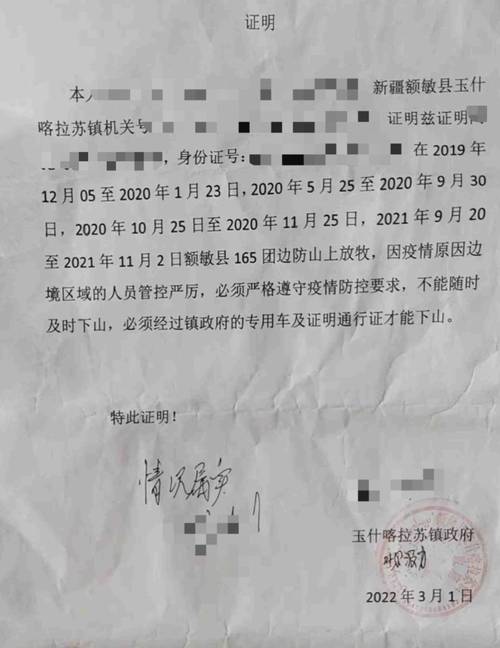 证明
本人 新疆额敏县玉什
喀拉苏镇机关号 证明兹证明
,身份证号: 在 2019 年
12 月 05 至 2020 年 1 月 23 日,2020 年 5 月 25 至 2020 年 9 月 30
日，2020 年 10 月 25 日至 2020 年 11 月 25 日，2021 年 9 月 20
至 2021 年 11 月 2 日额敏县 165 团边防山上放牧，因疫情原因边
境区域的人员管控严厉，必须严格遵守疫情防控要求，不能随时
及时下山，必须经过镇政府的专用车及证明通行证才能下山。
特此证明！
情况属实
玉什喀拉苏镇政府
2022 年 3 月 1 日